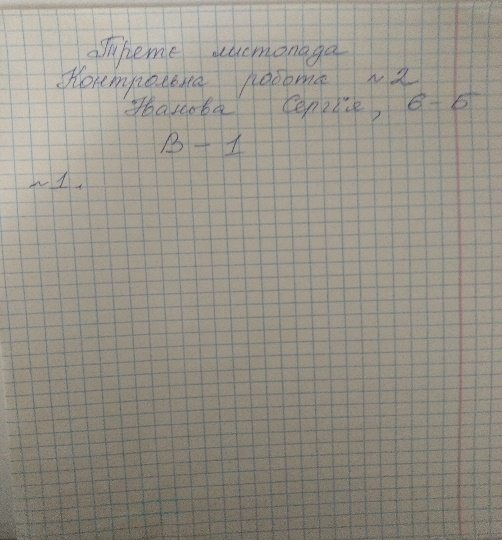 Третє листопада
Контрольна робота №2
Іванова Сергія, 6-Б
В-1
№1.